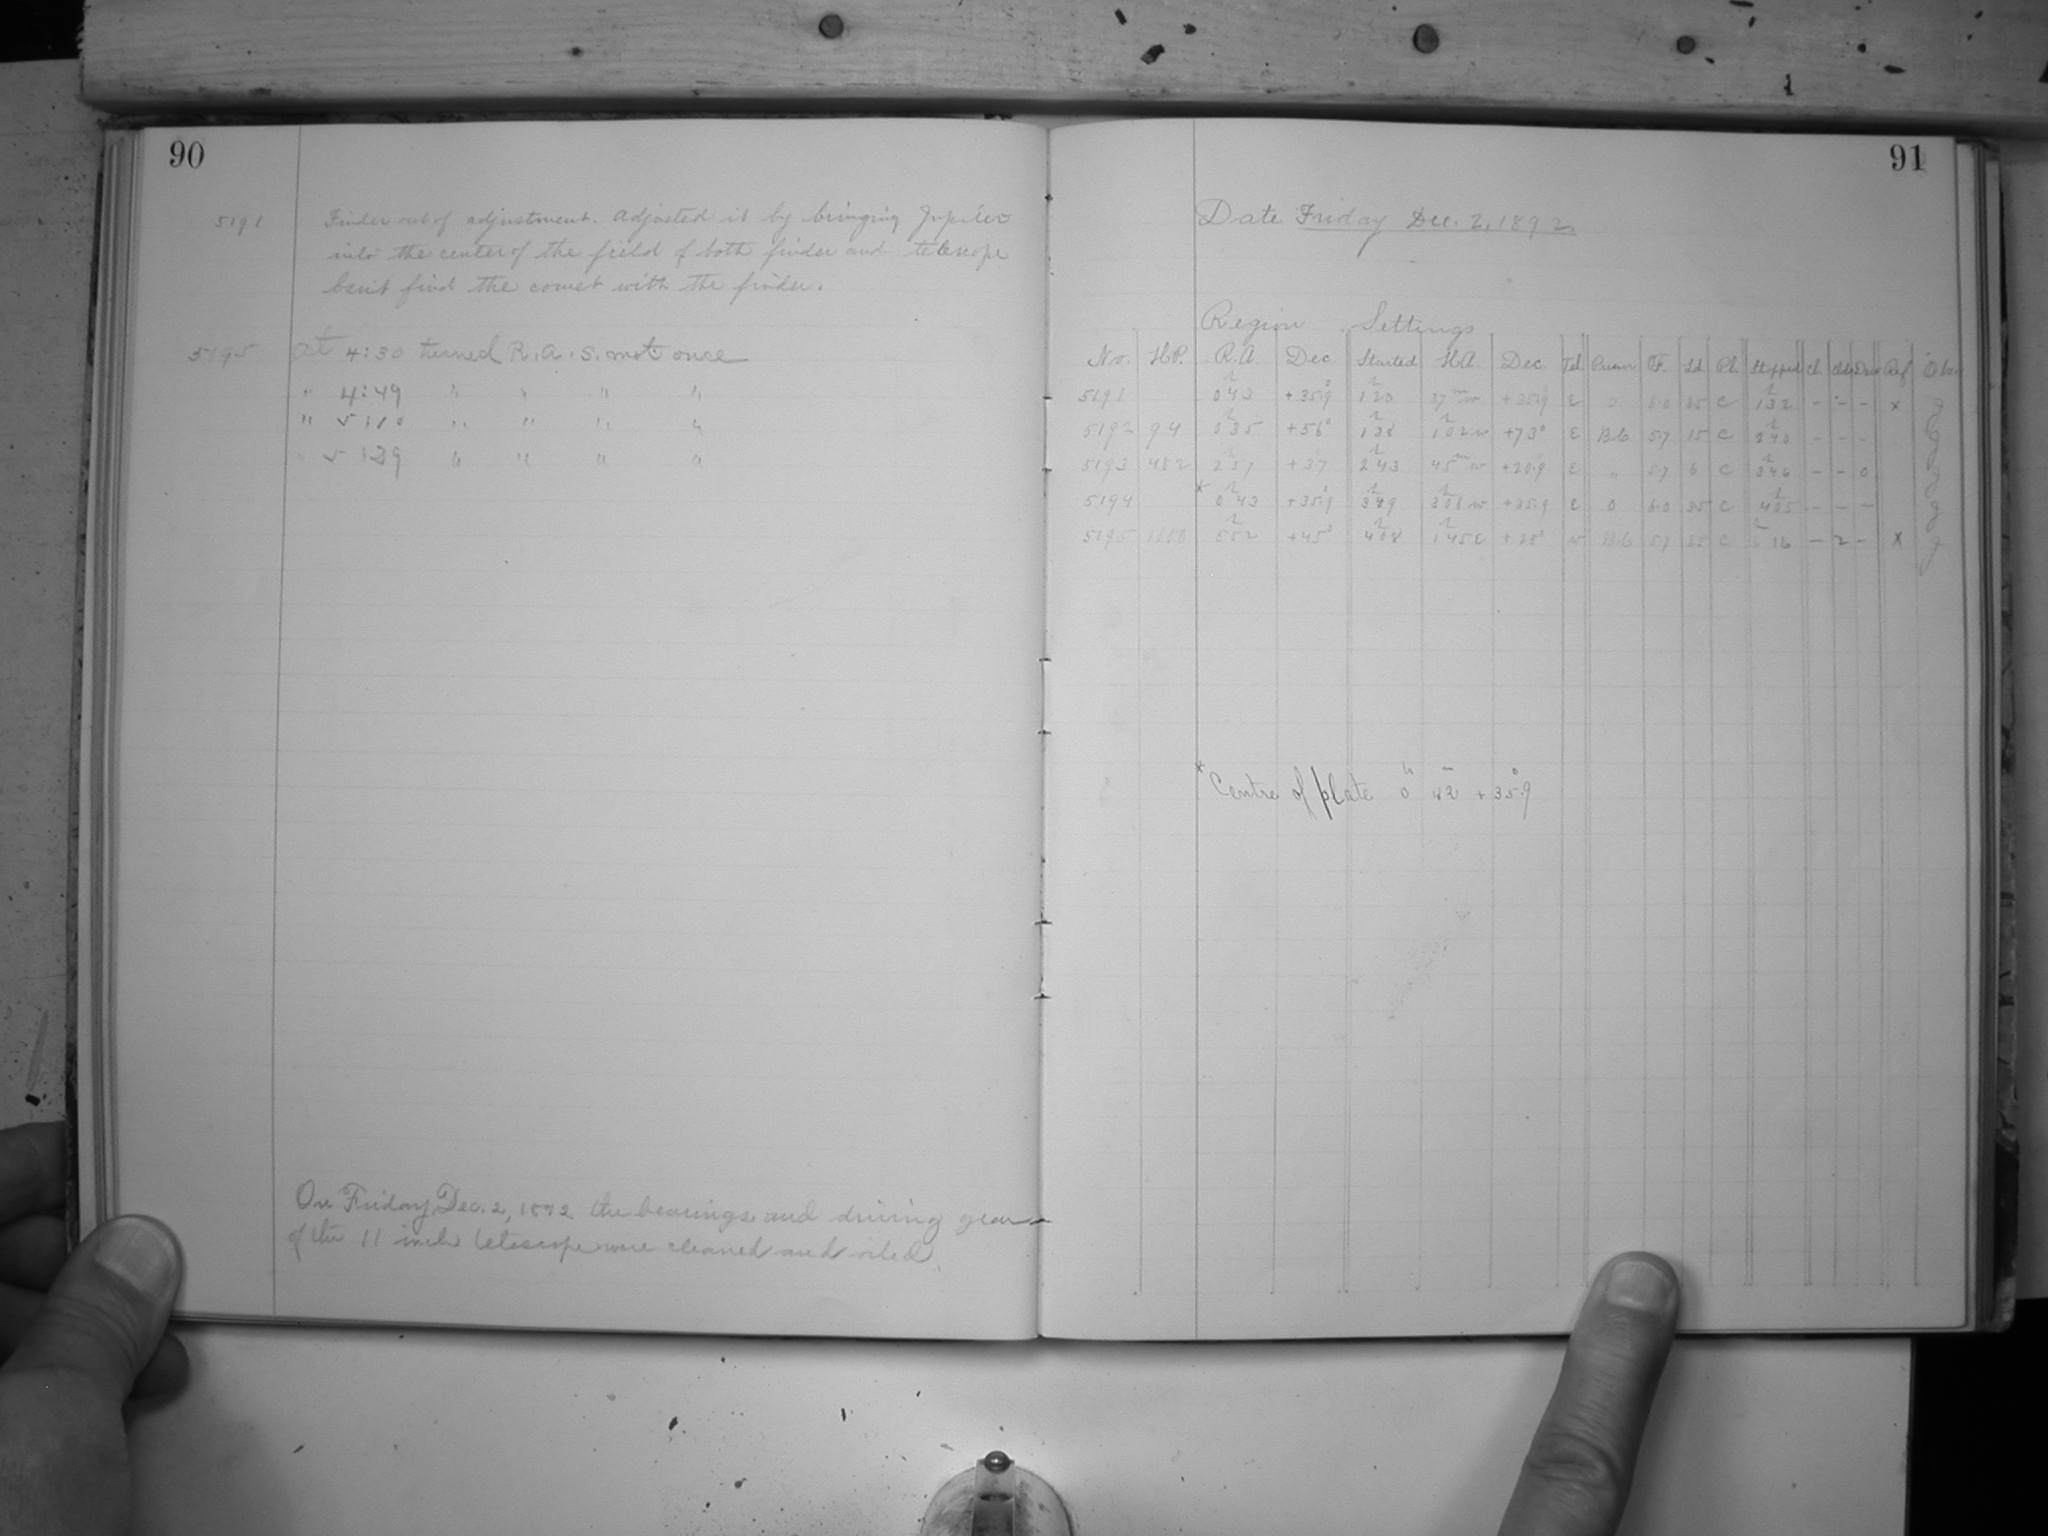 90
5191 Finder out of adjustment. Adjusted it by bringing Jupiter
into the center of the field of both finder and telescope
Can't find the comet with the finder.
5195 At 4:30 turned R.A. S. mot. once
" 4:49 " " " "
" 5:10 " " " "
" 5:29 " " " "
On Friday, Dec. 2, 1892 the bearings and driving gear
of the 11 inch telescope were cleaned and oiled.
91
Date Friday Dec. 2, 1892.
Region Settings
No. H.P. R.A. Dec Started H.A. Dec. Tel Prism F. Ld Pl. Stopped Ch. Clds Dew Ref Obs.
5191 0h43 +35°.9 1h20 37m w +35°.9 E 0 6.0 35 C 1h32 - - - x
5192 94 0h35 +56° 1h38 1h02 w +73° E B6 5.7 15 C 2h40 - - -
5193 482 2h37 +37 2h43 45m w +20.9 E " 5.7 6 C 3h46 - - 0
5194 * 0h43 +35°.9 3h49 3h08 w +35.9 E 0 6.0 35 C 4h05 - - -
5195 1180 5h52 +45° 4h08 1h45 E +28° w B6 5.7 35 C 16 - 2 - x
* Centre of plate 0h 42m +35°.9